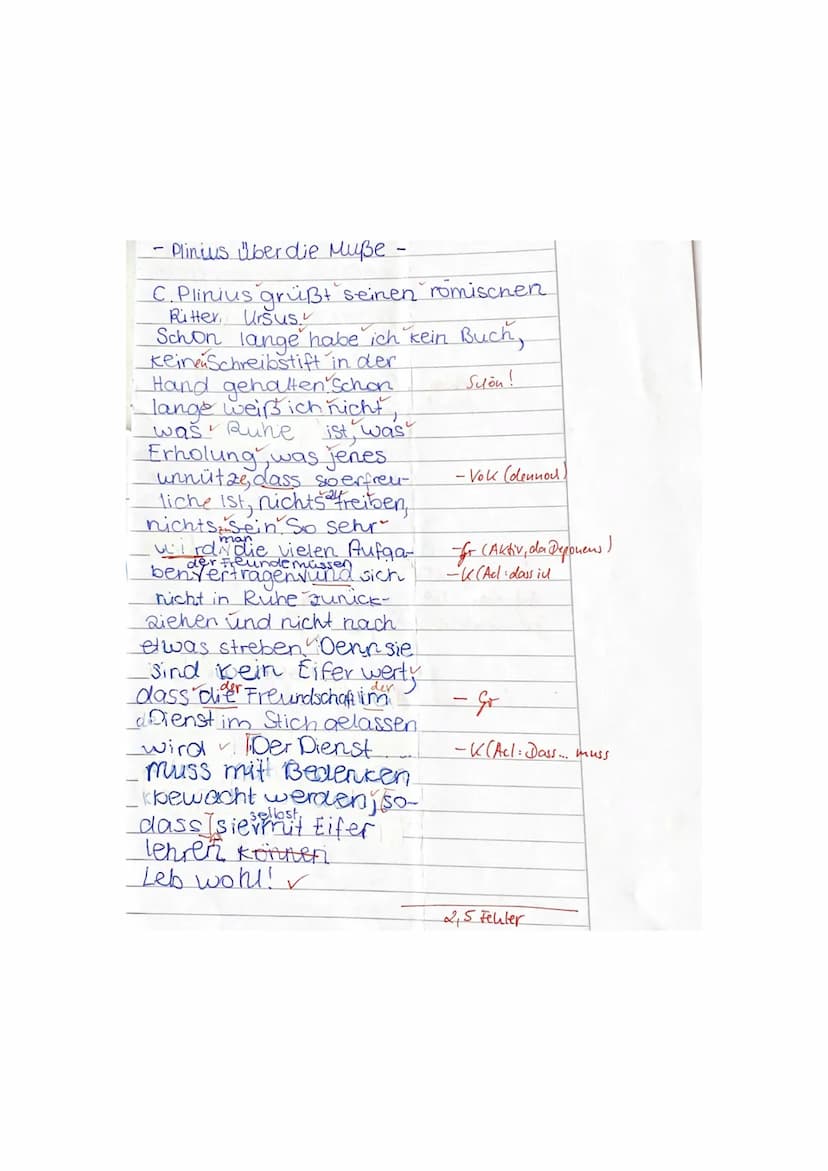 - Plinius über die Muße -
C. Plinius grüßt seinen römischen
Ritter Ursus.
Schon lange habe ich kein Buch,
keinen Schreibstift in der
Hand gehalten. Schon Schön!
lange weiß ich nicht,
was Ruhe ist, was
Erholung, was jenes
unnütze, dass so erfreu- - Vok (dennoch)
liche ist, nichts zu treiben,
nichts zu sein. So sehr
man
wird die vielen Aufga- - Gr (Aktiv, da Deponens)
der Freunde müssen
ben vertragen und sich - K (AcI: dass ich
nicht in Ruhe zurück-
ziehen und nicht nach
etwas streben. Denn sie
sind kein Eifer wert,
der der
dass die Freundschaft im - Gr
Dienst im Stich gelassen
wird. Der Dienst - K (AcI: Dass... muss
muss mit Bedenken
bewacht werden, so-
selbst
dass sie mit Eifer
lehren können
Leb wohl!
2,5 Fehler